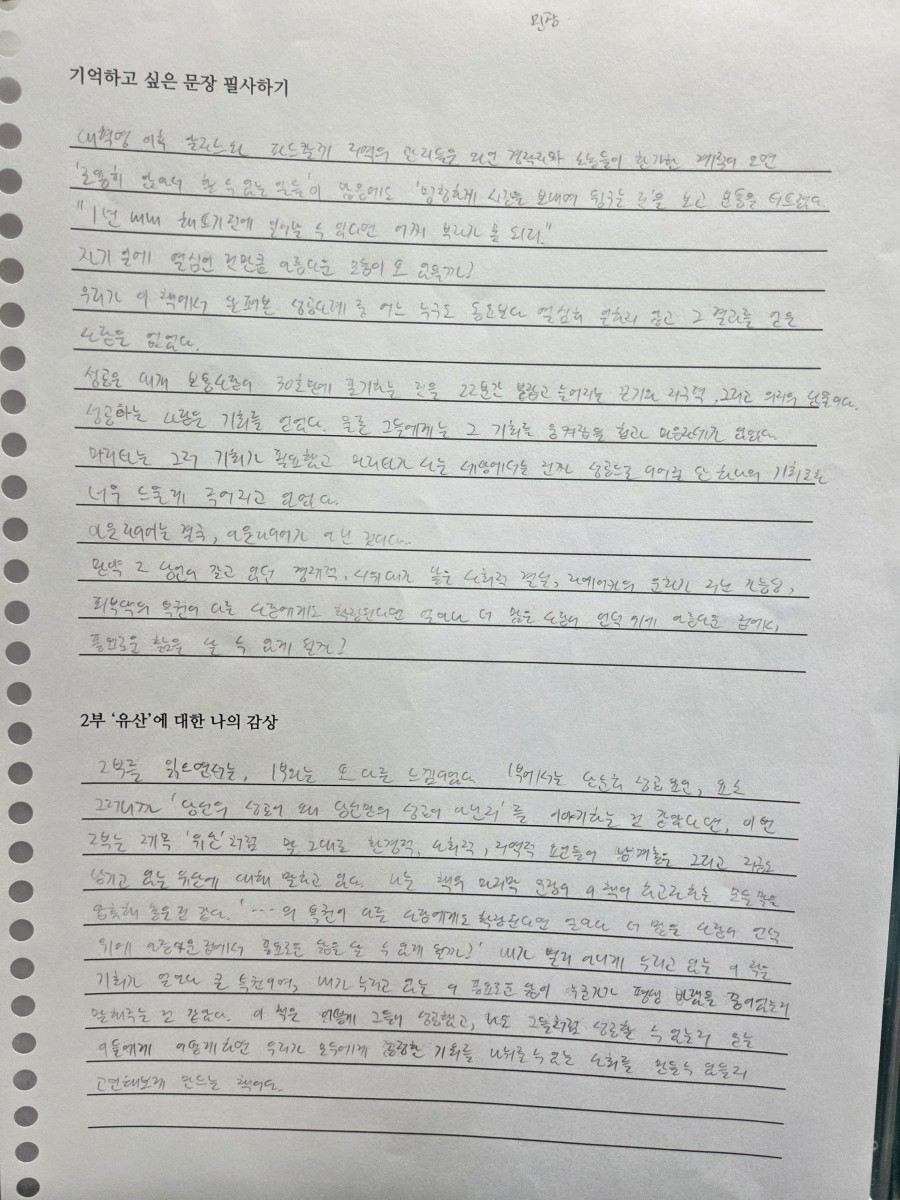 민장
기억하고 싶은 문장 필사하기
대혁명 이후 지역의 관리들은 와 농민들이 한가한 계절이 오면
'조용히 앉아서 할 수 있는 일들'이 많음에도 '멍청하게 시간을 보내며 뒹구는 것'을 보고 분통을 터뜨렸다
"1년 내내 해뜨기 전에 일어날 수 있다면 어찌 부자가 못 되리."
자기 일에 열심인 것만큼 아름다운 모습이 또 있을까?
우리가 이 책에서 살펴본 성공사례 중 어느 누구도 동료보다 열심히 일하지 않고 그 결과를 얻은
사람은 없었다.
성공은 대개 보통사람이 30초만에 포기하는 것을 22분간 붙잡고 늘어지는 끈기와 지구력, 그리고 의지의 산물이다.
성공하는 사람은 기회를 얻었다. 물론 그들에게는 그 기회를 움켜잡을 힘과 마음자세가 있었다.
마리타는 그저 기회가 필요했고 마리타가 사는 세상에서는 진짜 성공으로 이어줄 단 하나의 기회조차
너무 드물게 주어지고 있었다.
아웃라이어는 결국, 아웃라이어가 아닌 것이다.
만약 그 낳은 사회적 결실, 자메이카의 문화가 지닌 가능성,
피부색의 특권이 다른 사람에게도 확장된다면 얼마나 더 많은 사람이 언덕 위에 아름다운 집에서,
풍요로운 삶을 살 수 있게 될까?
2부 '유산'에 대한 나의 감상
2부를 읽으면서는, 1부와는 또 다른 느낌이었다. 1부에서는 단순히 성공 요인, 요소
그러니까 '당신의 성공이 왜 당신만의 성공이 아닌지'를 이야기하는 것 같았다면, 이번
2부는 제목 '유산'처럼 말 그대로 환경적, 사회적, 지역적 요인들이 남겨놓은 그리고 지금도
남기고 있는 유산에 대해 말하고 있다. 나는 책의 마지막 문장이 이 책이 하고자하는 모든 말을
압축해 놓은 것 같다. '…의 특권이 다른 사람에게도 확장된다면 얼마나 더 많은 사람이 언덕
위에 아름다운 집에서 풍요로운 삶을 살 수 있게 될까?' 내가 별거 아니게 누리고 있는 이 작은
기회가 얼마나 큰 특권이며, 내가 누리고 있는 이 풍요로운 삶이 누군가가 평생 바랬을 꿈이었는지
말해주는 것 같았다. 이 책은 어떻게 그들이 성공했고, 나도 그들처럼 성공할 수 있는지 묻는
이들에게 어떻게하면 우리가 모두에게 공평한 기회를 나눠줄 수 있는 사회를 만들수 있을지
고민해보게 만드는 책이다.